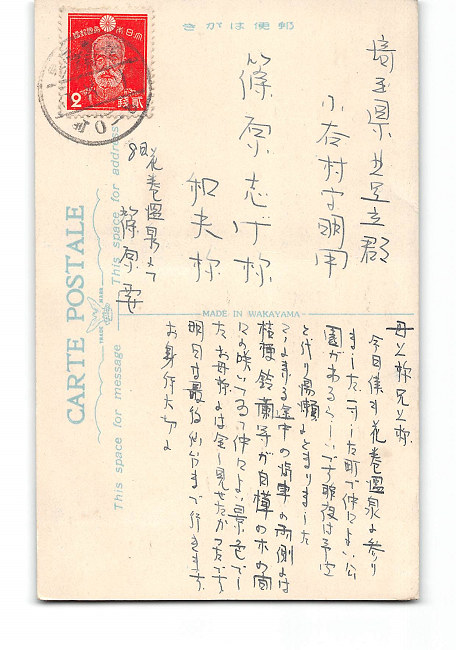 きがは便郵
大日本帝國郵便
2 貳錢
埼玉県北足立郡
小谷村字明用
篠原志げ様
和夫様
8日花巻温泉にて
篠原
CARTE POSTALE
This space for message
This space for address
TRADE MARK
MADE IN WAKAYAMA
母上様兄上様
今日僕は花巻温泉に参り
ました 町で仲々よい公
園があるらしいです昨夜は予定
を代り湯瀬にとまりました
途中の汽車の両側には
桔梗鈴蘭等が白樺の木の間
に咲いてゐて仲々よい景色でし
たお母様にも見せたかったです
明日は最後仙台まで行きます
お身体大切に